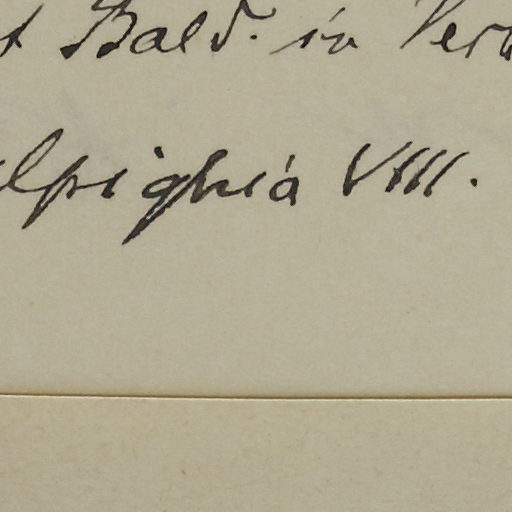 t Bald. in Ver
lpighia VIII.